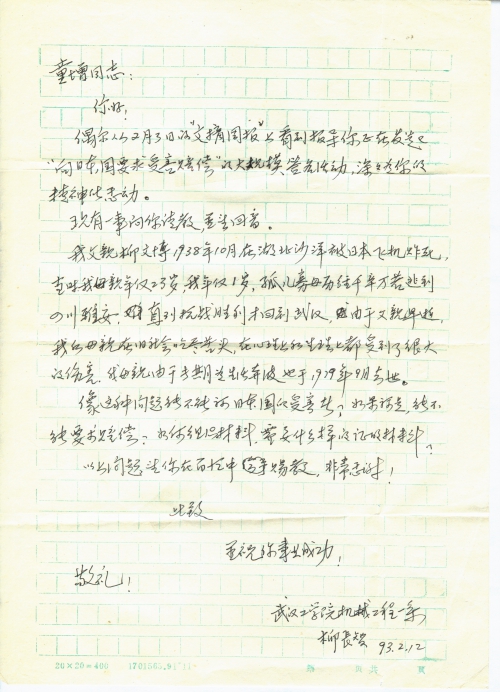 童增同志：
你好！
偶尔从2月3日的“文摘周报”上看到报导你正在发起
“向日本国要求受害赔偿”的大规模签名活动，深深为你的
精神所感动。
现有一事向你请教，至望回音。
我父亲柳文博1938年10月在湖北沙洋被日本飞机炸死，
当时我母亲年仅23岁，我年仅1岁，孤儿寡母历经千辛万苦逃到
四川雅安，直到抗战胜利才回到武汉，由于父亲早逝，
我和母亲在旧社会吃尽苦头，在心理上和生理上都受到了很大
的伤害，我母亲由于长期在外奔波也于1979年9月去世。
像这种问题能不能向日本国的受害者？如果可是，能不
能要求赔偿？如何组织材料，需要什么样的证明材料？
以上问题请你在百忙中赐教，非常感谢！
此致
至祝你事业成功！
敬礼！
武汉工学院机械工程一系
柳长智 93.2.12
20×20=400